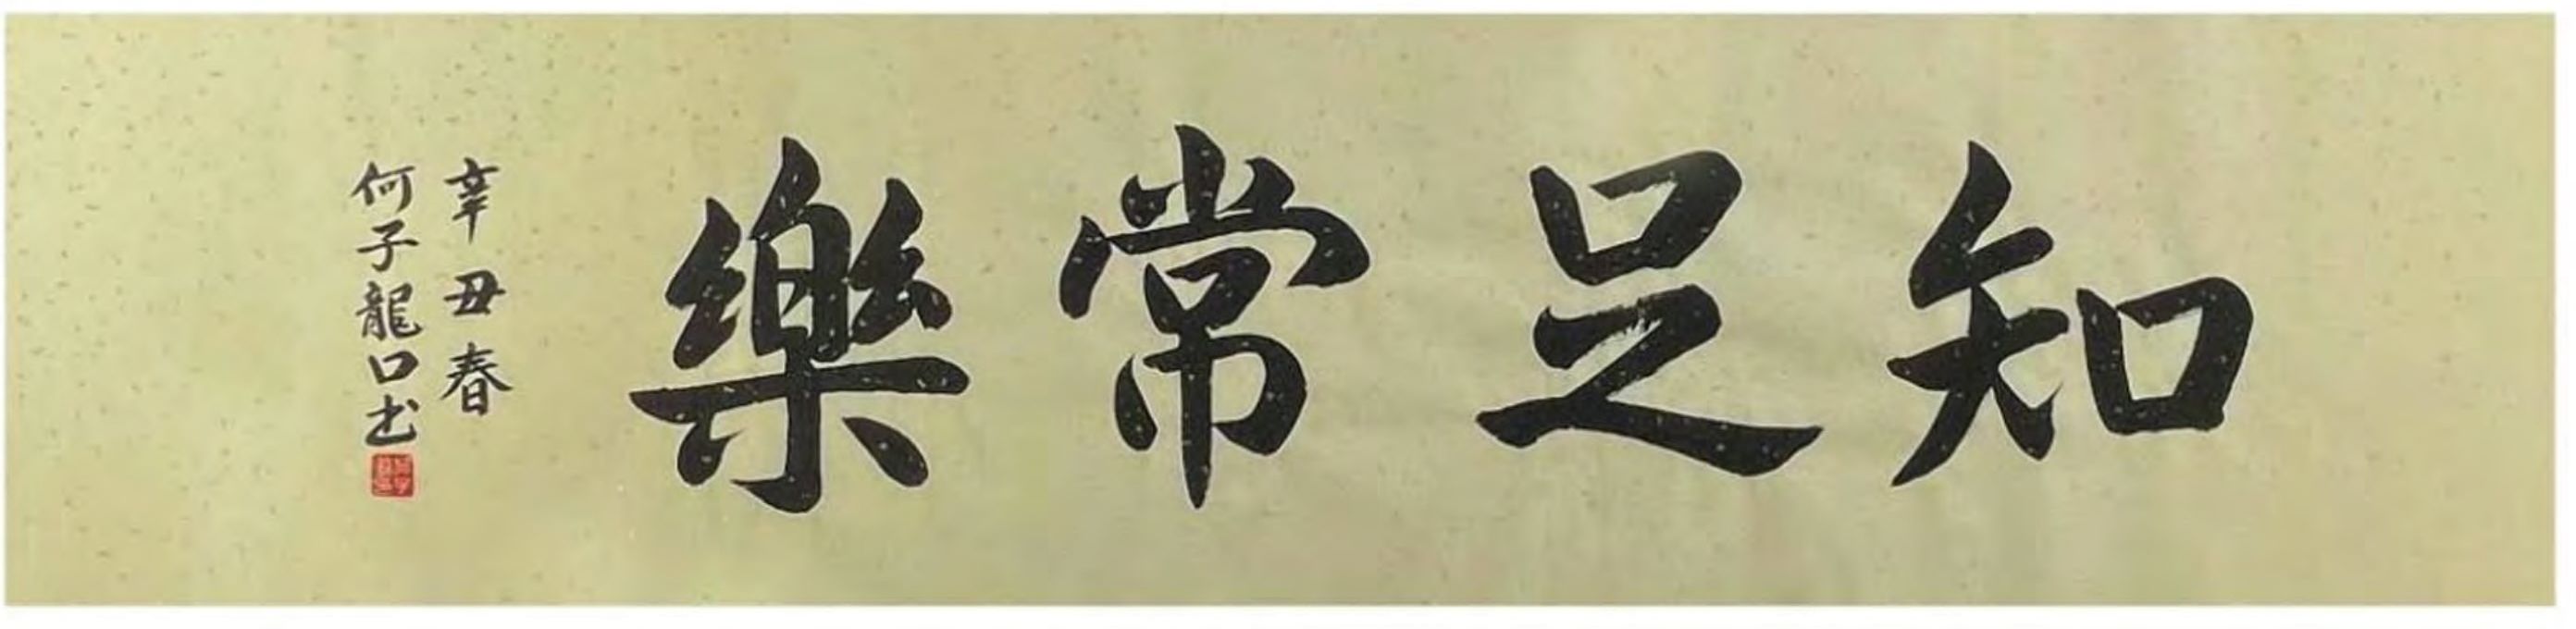 知足常樂
辛丑春
何子龍口书